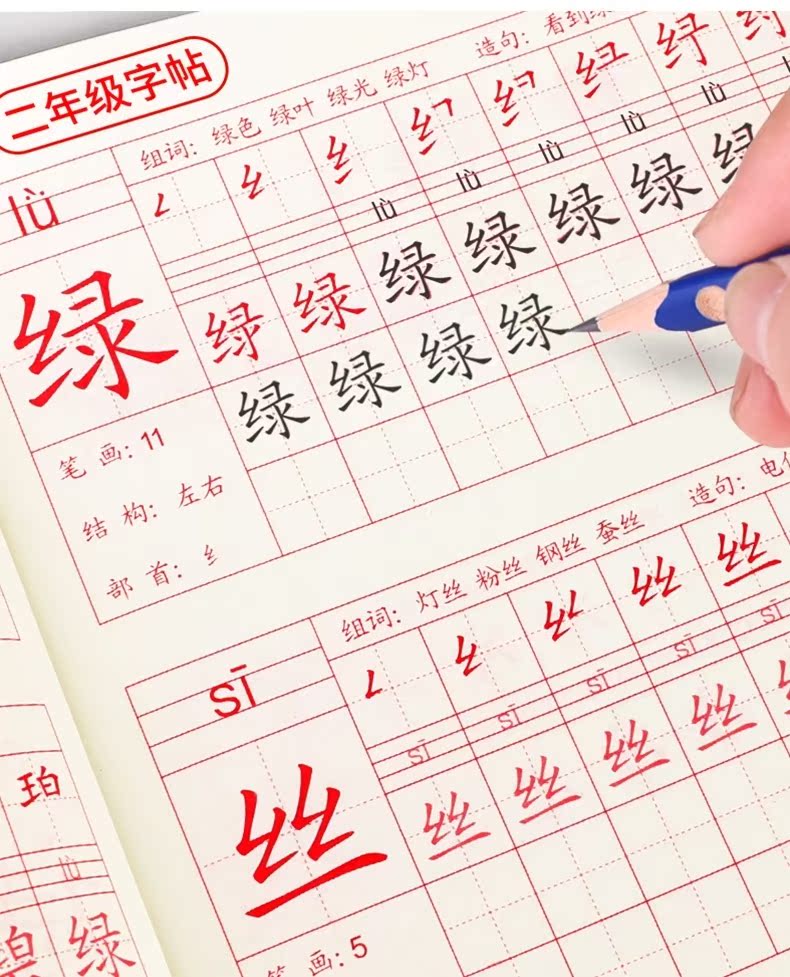 二年级字帖
组词：绿色 绿叶 绿光 绿灯 造句：看到绿
lǜ
lǜ lǜ lǜ lǜ lǜ
绿
绿 绿 绿 绿 绿 绿 绿
绿 绿 绿 绿
笔 画：11
结 构：左右
部 首：纟
组词：灯丝 粉丝 钢丝 蚕丝 造句：电
sī
sī sī sī sī sī
丝
丝 丝
丝 丝 丝 丝
笔 画：5
珀
lǜ
碧 绿